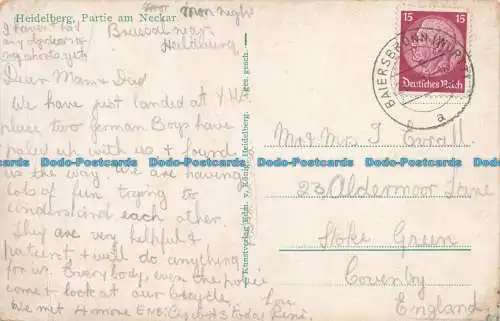 Heidelberg, Partie am Neckar
I haven't had
any
Dear Mam & Dad
We have just landed at Y.H.A
place two German Boys have
paled up with us & found
us the way We are having
lots of fun trying to
understand each other
They are very helpful &
patient & will do anything
for us. Everybody, even the police
come & look at our bicycle.
We met 4 more English Cyclists today Love
ges. gesch.
Kunstverlag Edm. v. König, Heidelberg.
15 15
Deutsches Reich
BAIERSBRONN (WÜRTT)
a
Mr & Mrs J
23 Aldermoor Lane
Stoke Green
Coventry
England
Dodo-Postcards Dodo-Postcards Dodo-Postcards Dodo-Postcards Dodo-Postcards